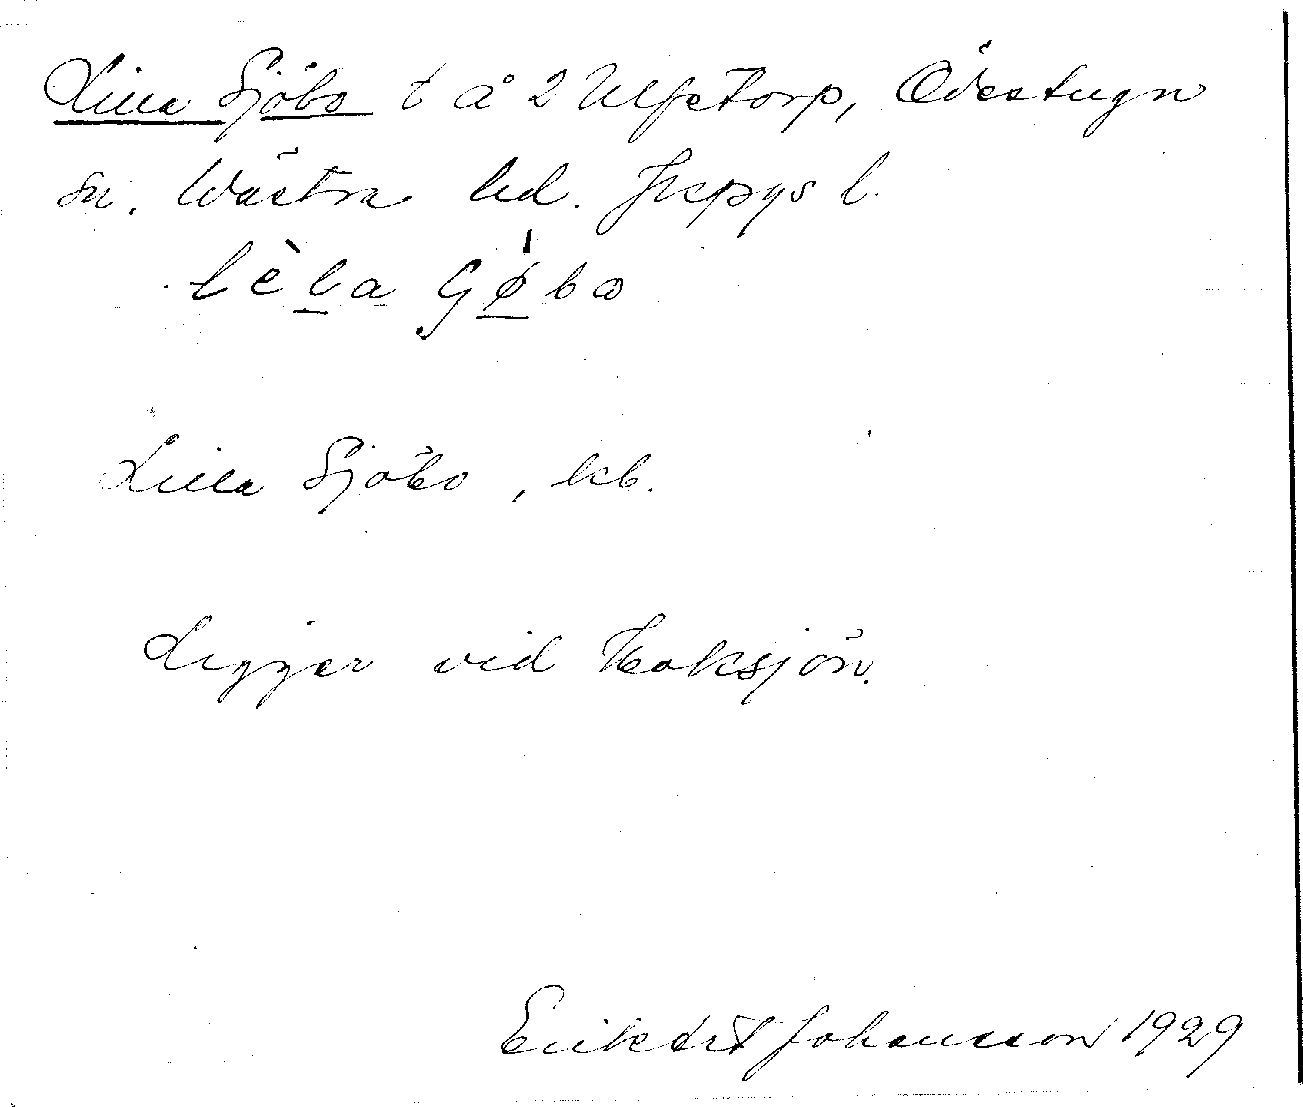 Lilla Sjöbo t å 2 Ulfstorp, Ödestugu
sn. Wästra hd. Jkpgs l.
lèla Sjöbo
Lilla Sjöbo, kb.
Ligger vid Hoksjön.
Johansson 1929